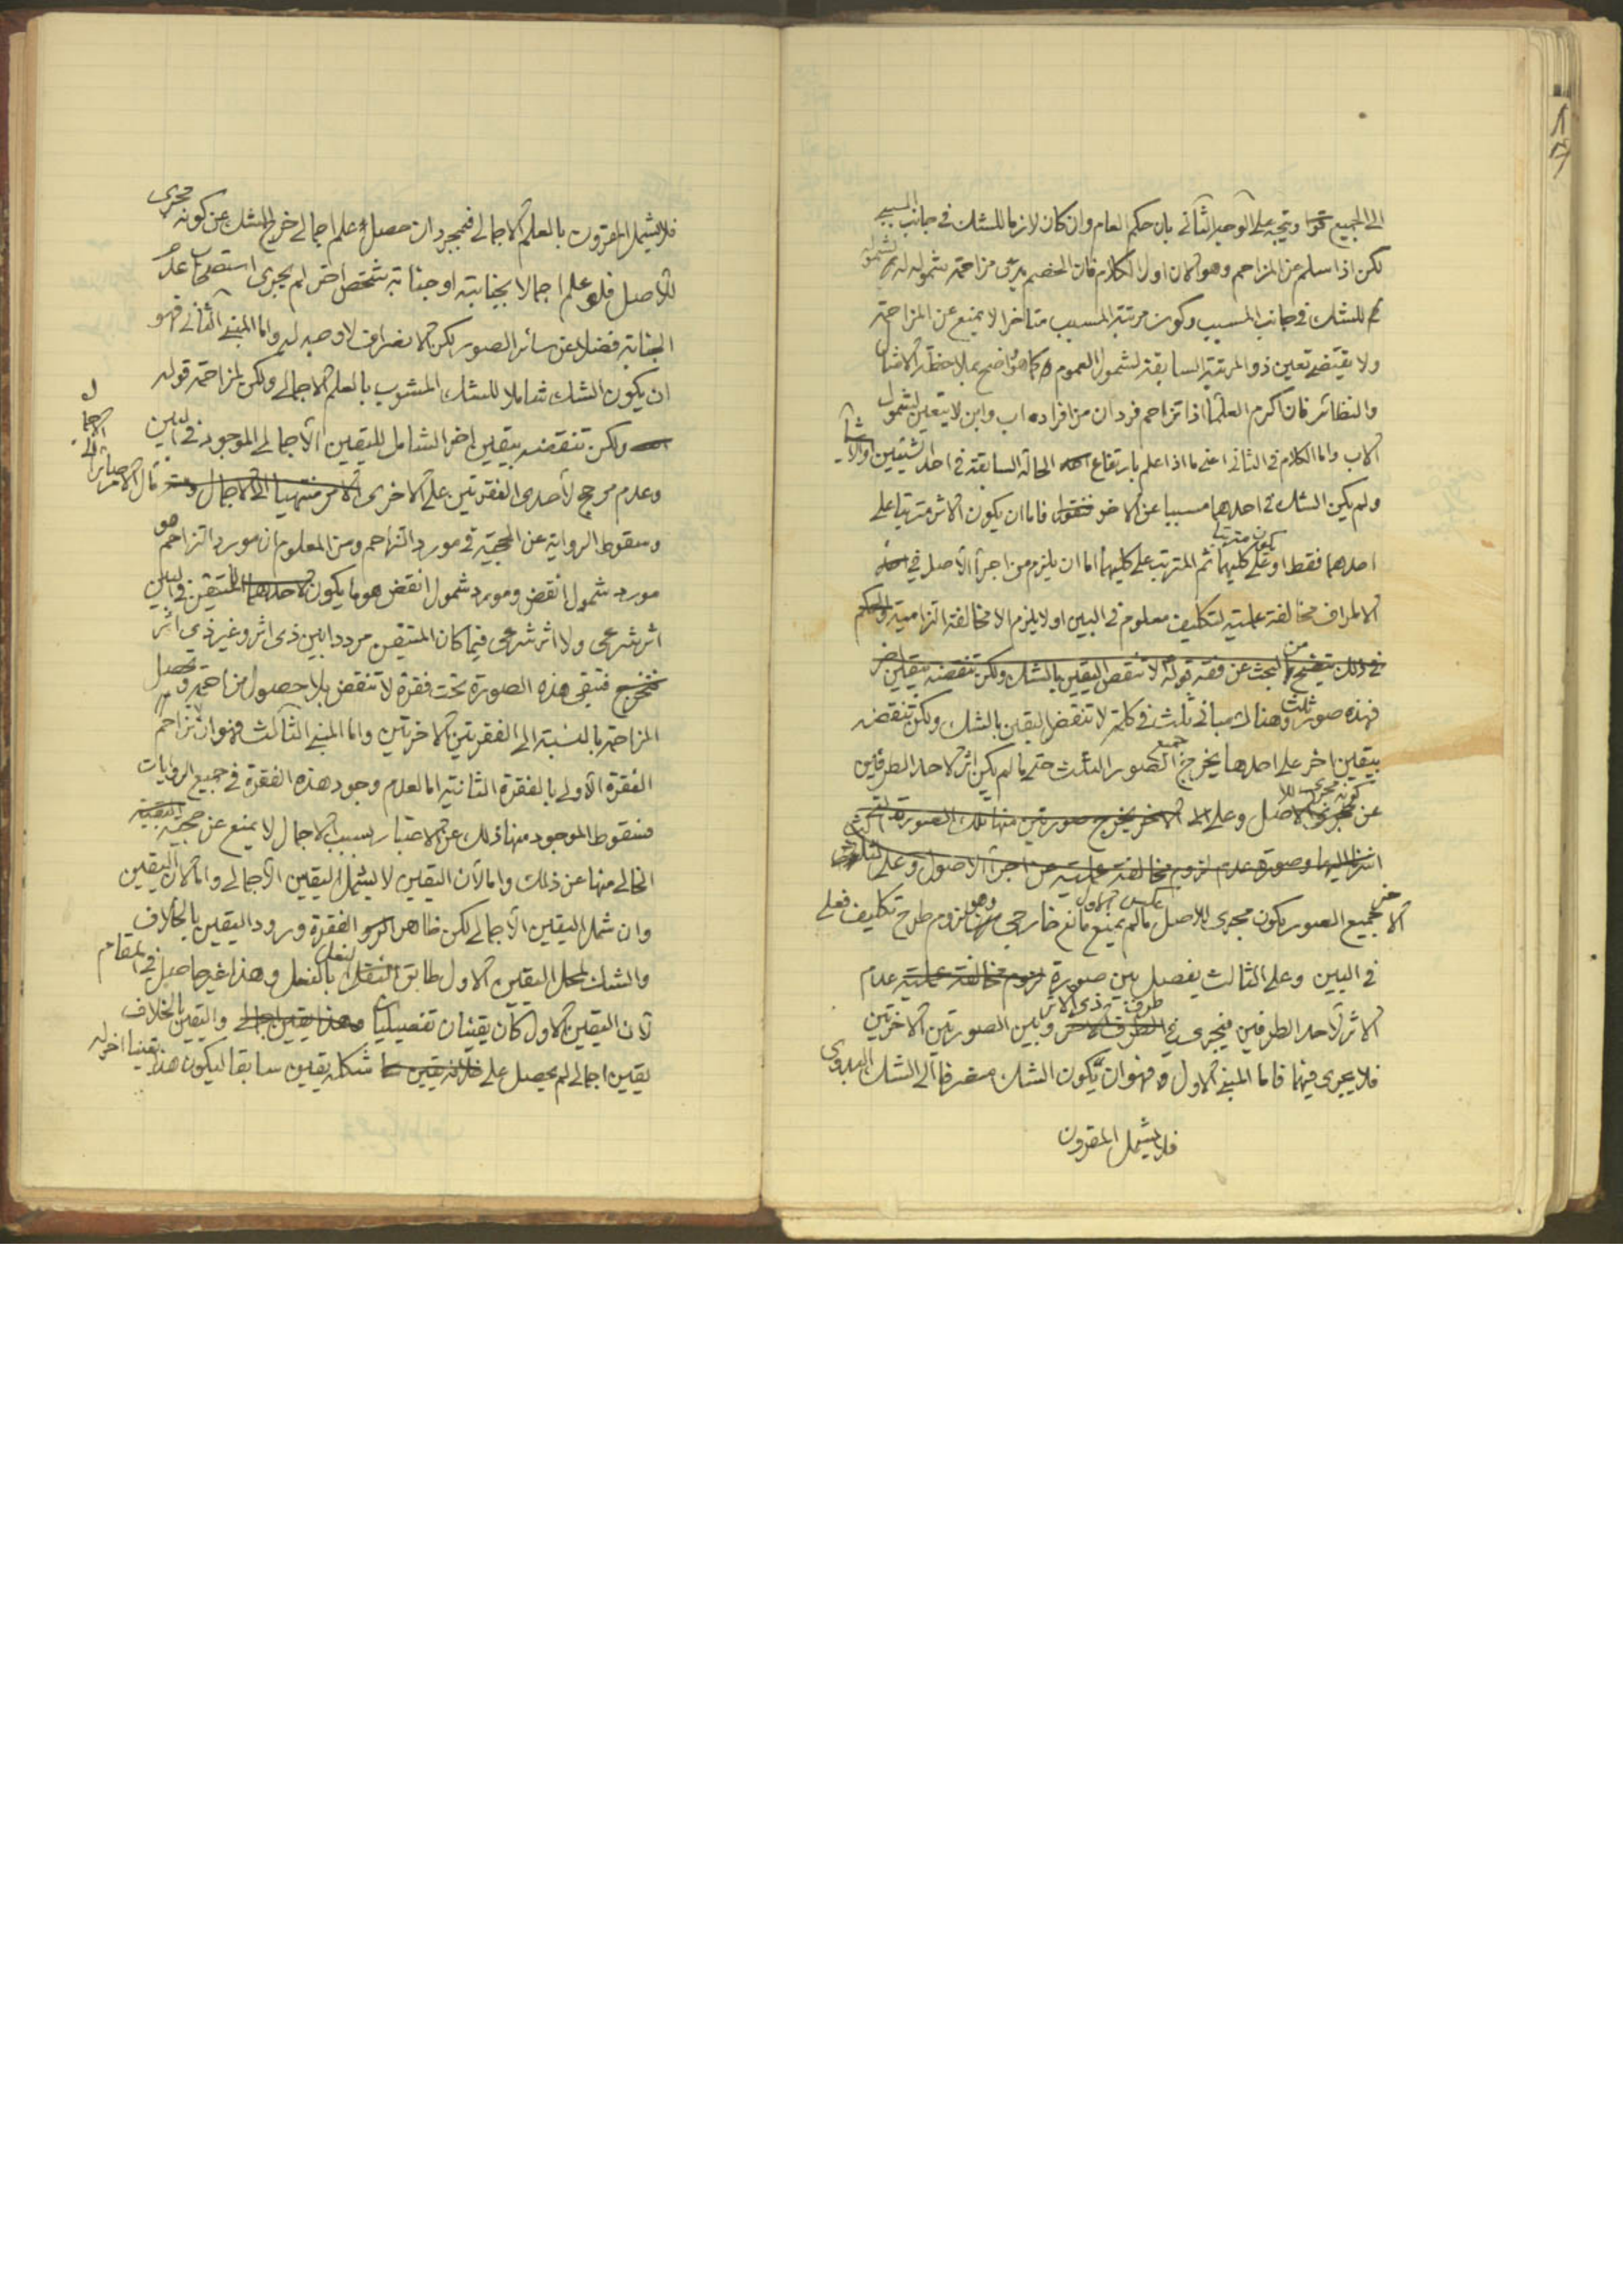 الى الجميع ويتجه على الوجه الثاني بان حكم العام وان كان لازما للشك في جانب المسبب
لكن اذا سلم عن المزاحم وهو الان اول الكلام فان الخصم يدعى مزاحمة شموله له لشموله
للشك في جانب المسبب وكون مرتبة المسبب متاخرا لا يمنع عن المزاحمة
ولا يقتضي تعين ذو المرتبة السابقة لشمول العموم كما هو واضح بملاحظة الامثال
والنظائر فان اكرم العلماء اذا تزاحم فردان من افراده اب وابن لا يتعين لشمول
الاب واما الكلام في الثاني اعنى ما اذا علم بارتفاع الحالة السابقة في احد الشيئين او الاشياء
ولم يكن الشك في احدهما مسببا عن الاخر فنقول فاما ان يكون الاثر مترتبا على
احدهما فقط او يكون مترتبا على كليهما ثم المترتب على كليهما اما ان يلزم من اجراء الاصل في
الاطراف مخالفة عملية لتكليف معلوم في البين او لا يلزم الا مخالفة التزامية والحكم
في ذلك يتضح من البحث عن فقه قوله لا تنقض اليقين بالشك ولكن تنقضه بيقين اخر
فهذه صور ثلث وهناك مباني ثلث في كلمة لا تنقض اليقين بالشك ولكن تنقضه
بيقين اخر على احدها يخرج جميع الصور الثلث حتى ما لم يكن اثر لاحد الطرفين
عن كونه مجرى للاصل وعلى الاخر يخرج صورتين منها تلك الصورة التي
اشرنا اليها وصورة عدم لزوم مخالفة عملية من اجراء الاصول وعلى الثالث
الاخر عكس الاول جميع الصور يكون مجرى للاصل ما لم يمنع مانع خارجي وهو لزوم طرح تكليف فعلى
في البين وعلى الثالث يفصل بين صورة لزوم مخالفة عملية عدم
الاثر لاحد الطرفين فيجرى في طرف ذي الاثر وبين الصورتين الاخرتين
فلا يجرى فيهما فاما المبنى الاول فهو ان يكون الشك منصرفا الى الشك البدوى
فلا يشمل المقرون
فلا يشمل المقرون بالعلم الاجمالى فبمجرد ان حصل علم اجمالى خرج الشك عن كونه مجرى
للاصل فلو علم اجمالا بجنابته او جنابة شخص اخر لم يجرى استصحاب عدم
الجنابة فضلا عن سائر الصور لكن الانصراف لا وجه له واما المبنى الثاني فهو
ان يكون الشك شاملا للشك المشوب بالعلم الاجمالى ولكن لمزاحمة قوله
ولكن تنقضه بيقين اخر الشامل لليقين الاجمالى الموجود في البين
وعدم مرجح لاحدى الفقرتين على الاخرى مآل الامر صائر الى الاجمال
وسقوط الرواية عن الحجية في مورد التزاحم ومن المعلوم ان مورد التزاحم هو
مورد شمول انقض ومورد شمول انقض هو ما يكون للمتيقن في البين
اثر شرعى ولا اثر شرعى فيما كان المتيقن مرددا بين ذى اثر وغير ذي اثر
فتبقى هذه الصورة تحت فقرة لا تنقض بلا حصول مزاحمة وتحصل
المزاحمة بالنسبة الى الفقرتين الاخرتين واما المبنى الثالث فهو ان لا تزاحم
الفقرة الاولى بالفقرة الثانية اما لعدم وجود هذه الفقرة في جميع الروايات
فسقوط الموجود منها ذلك عن الاعتبار بسبب الاجمال لا يمنع عن حجية البقية
الخالى منها عن ذلك واما لان اليقين لا يشمل اليقين الاجمالى واما لان اليقين
وان شمل اليقين الاجمالى لكن ظاهر الفقرة ورود اليقين بالخلاف
والشك لمحل اليقين الاول طابق النعل بالنعل وهذا غير حاصل في المقام
لان اليقين الاول كان يقينان تفصيليان واليقين بالخلاف
يقين اجمالى لم يحصل على شكله يقين سابقا ليكون هذا يقينا اخر له